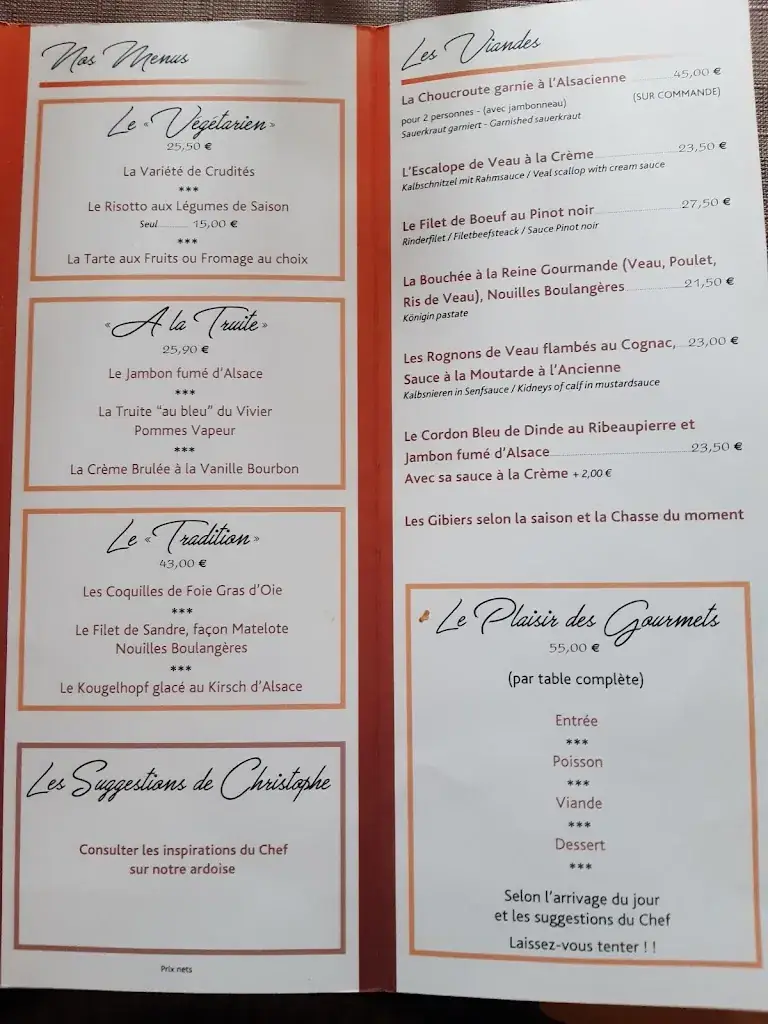 Nos Menus
Le « Végétarien »
25,50 €
La Variété de Crudités
***
Le Risotto aux Légumes de Saison
Seul 15,00 €
***
La Tarte aux Fruits ou Fromage au choix
« A la Truite »
25,90 €
Le Jambon fumé d'Alsace
***
La Truite "au bleu" du Vivier
Pommes Vapeur
***
La Crème Brulée à la Vanille Bourbon
Le « Tradition »
43,00 €
Les Coquilles de Foie Gras d'Oie
***
Le Filet de Sandre, façon Matelote
Nouilles Boulangères
***
Le Kougelhopf glacé au Kirsch d'Alsace
Les Suggestions de Christophe
Consulter les inspirations du Chef
sur notre ardoise
Prix nets
Les Viandes
La Choucroute garnie à l'Alsacienne 45,00 €
pour 2 personnes - (avec jambonneau) (SUR COMMANDE)
Sauerkraut garniert - Garnished sauerkraut
L'Escalope de Veau à la Crème 23,50 €
Kalbschnitzel mit Rahmsauce / Veal scallop with cream sauce
Le Filet de Boeuf au Pinot noir 27,50 €
Rinderfilet / Filetbeefsteack / Sauce Pinot noir
La Bouchée à la Reine Gourmande (Veau, Poulet,
Ris de Veau), Nouilles Boulangères 21,50 €
Königin pastate
Les Rognons de Veau flambés au Cognac, 23,00 €
Sauce à la Moutarde à l'Ancienne
Kalbsnieren in Senfsauce / Kidneys of calf in mustardsauce
Le Cordon Bleu de Dinde au Ribeaupierre et
Jambon fumé d'Alsace 23,50 €
Avec sa sauce à la Crème + 2,00 €
Les Gibiers selon la saison et la Chasse du moment
Le Plaisir des Gourmets
55,00 €
(par table complète)
Entrée
***
Poisson
***
Viande
***
Dessert
***
Selon l'arrivage du jour
et les suggestions du Chef
Laissez-vous tenter ! !